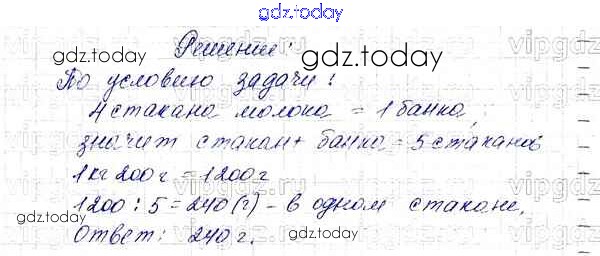 gdz.today
Решение:
gdz.today gdz.today
По условию задачи:
4 стакана молока = 1 банка,
значит стакан + банка = 5 стаканов
1 кг 200 г = 1200 г
1200 : 5 = 240 (г) - в одном стакане.
gdz.today gdz.today
Ответ: 240 г.
gdz.today